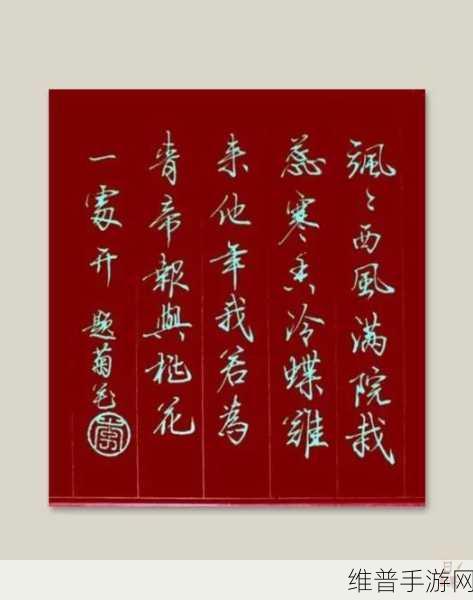 飒〻西風满院栽
蕊寒香冷蝶難
来他年我若為
青帝報與桃花
一處开 题菊花
维普手游网